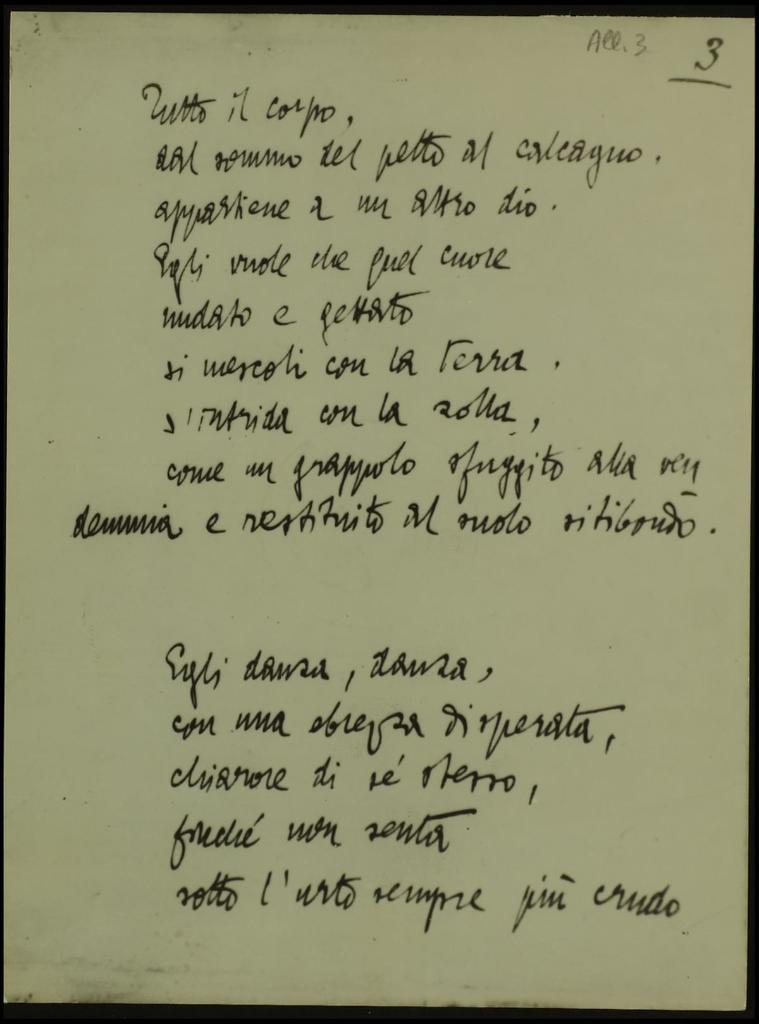 All. 3
3
Tutto il corpo,
dal sommo del petto al calcagno.
appartiene a un altro dio.
Egli vuole che quel cuore
nudato e gettato
si mescoli con la terra.
s'intrida con la zolla,
come un grappolo sfuggito alla ven
demmia e restituito al suolo sitibondo.
Egli danza, danza,
con una ebrezza disperata,
chiarore di sé stesso,
finché non senta
sotto l'urto sempre più crudo